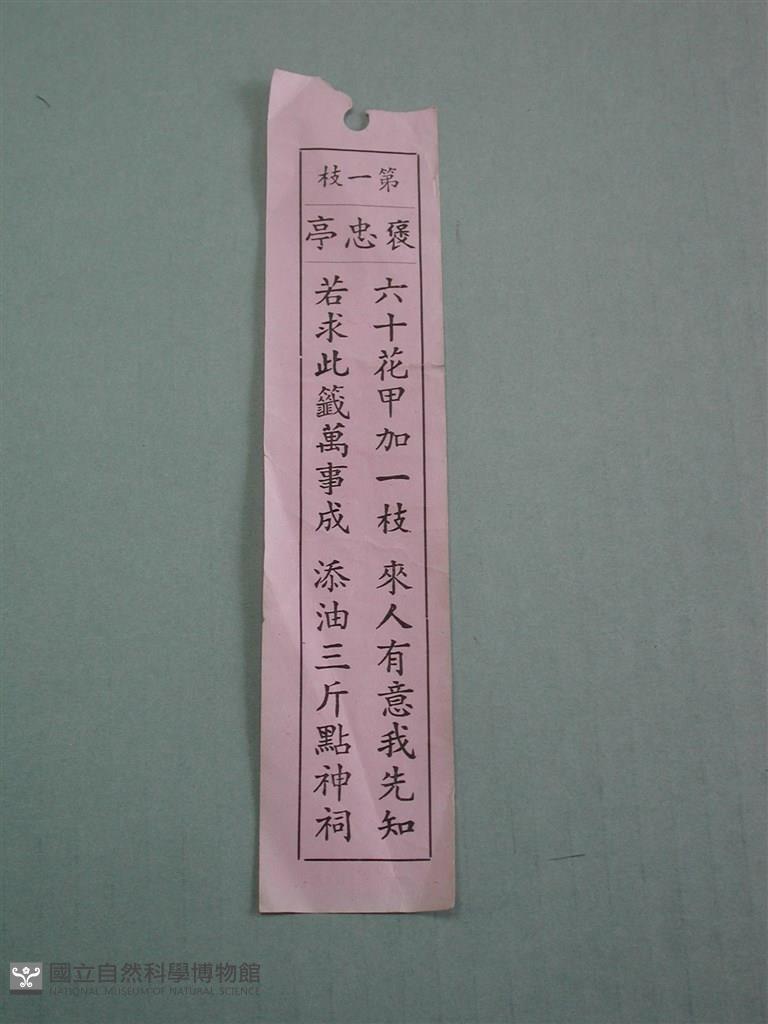 第一枝
褒忠亭
六十花甲加一枝 來人有意我先知
若求此籤萬事成 添油三斤點神祠
國立自然科學博物館
NATIONAL MUSEUM OF NATURAL SCIENCE